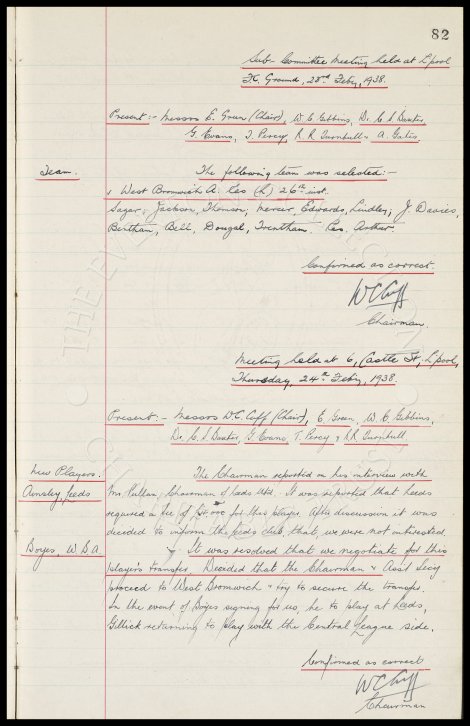 82
Sub-Committee Meeting held at L'pool
F.C. Ground, 23rd Feby, 1938.
Present:- Messrs E. Green (Chair), W.C. Gibbins, Dr. C.S. Baxter,
G. Evans, T. Percy, R.R. Turnbull & A. Gates.
Team. The following team was selected:-
v West Bromwich A. Res (H) 26th inst.
Sagar: Jackson, Thomson, Mercer, Edwards, Lindley, J. Davies,
Bentham, Bell, Dougal, Trentham. Res. Arthur.
Confirmed as correct.
W C Cuff
Chairman.
Meeting held at 6, Castle St, L'pool,
Thursday, 24th Feby, 1938.
Present:- Messrs W.C. Cuff (Chair), E. Green, W.C. Gibbins,
Dr. C.S. Baxter, G. Evans, T. Percy & R.R. Turnbull
New Players. The Chairman reported on his interview with
Ainsley, Leeds Mr. Pullan, Chairman of Leeds Utd. It was reported that Leeds
required a fee of for this player. After discussion it was
decided to inform the Leeds club that we were not interested.
Boyes, W.B.A. It was resolved that we negotiate for this
player's transfer. Decided that the Chairman & Ass't Secy
proceed to West Bromwich & try to secure the transfer.
In the event of Boyes signing for us, he to play at Leeds,
Gillick returning to play with the Central League side.
Confirmed as correct
W C Cuff
Chairman